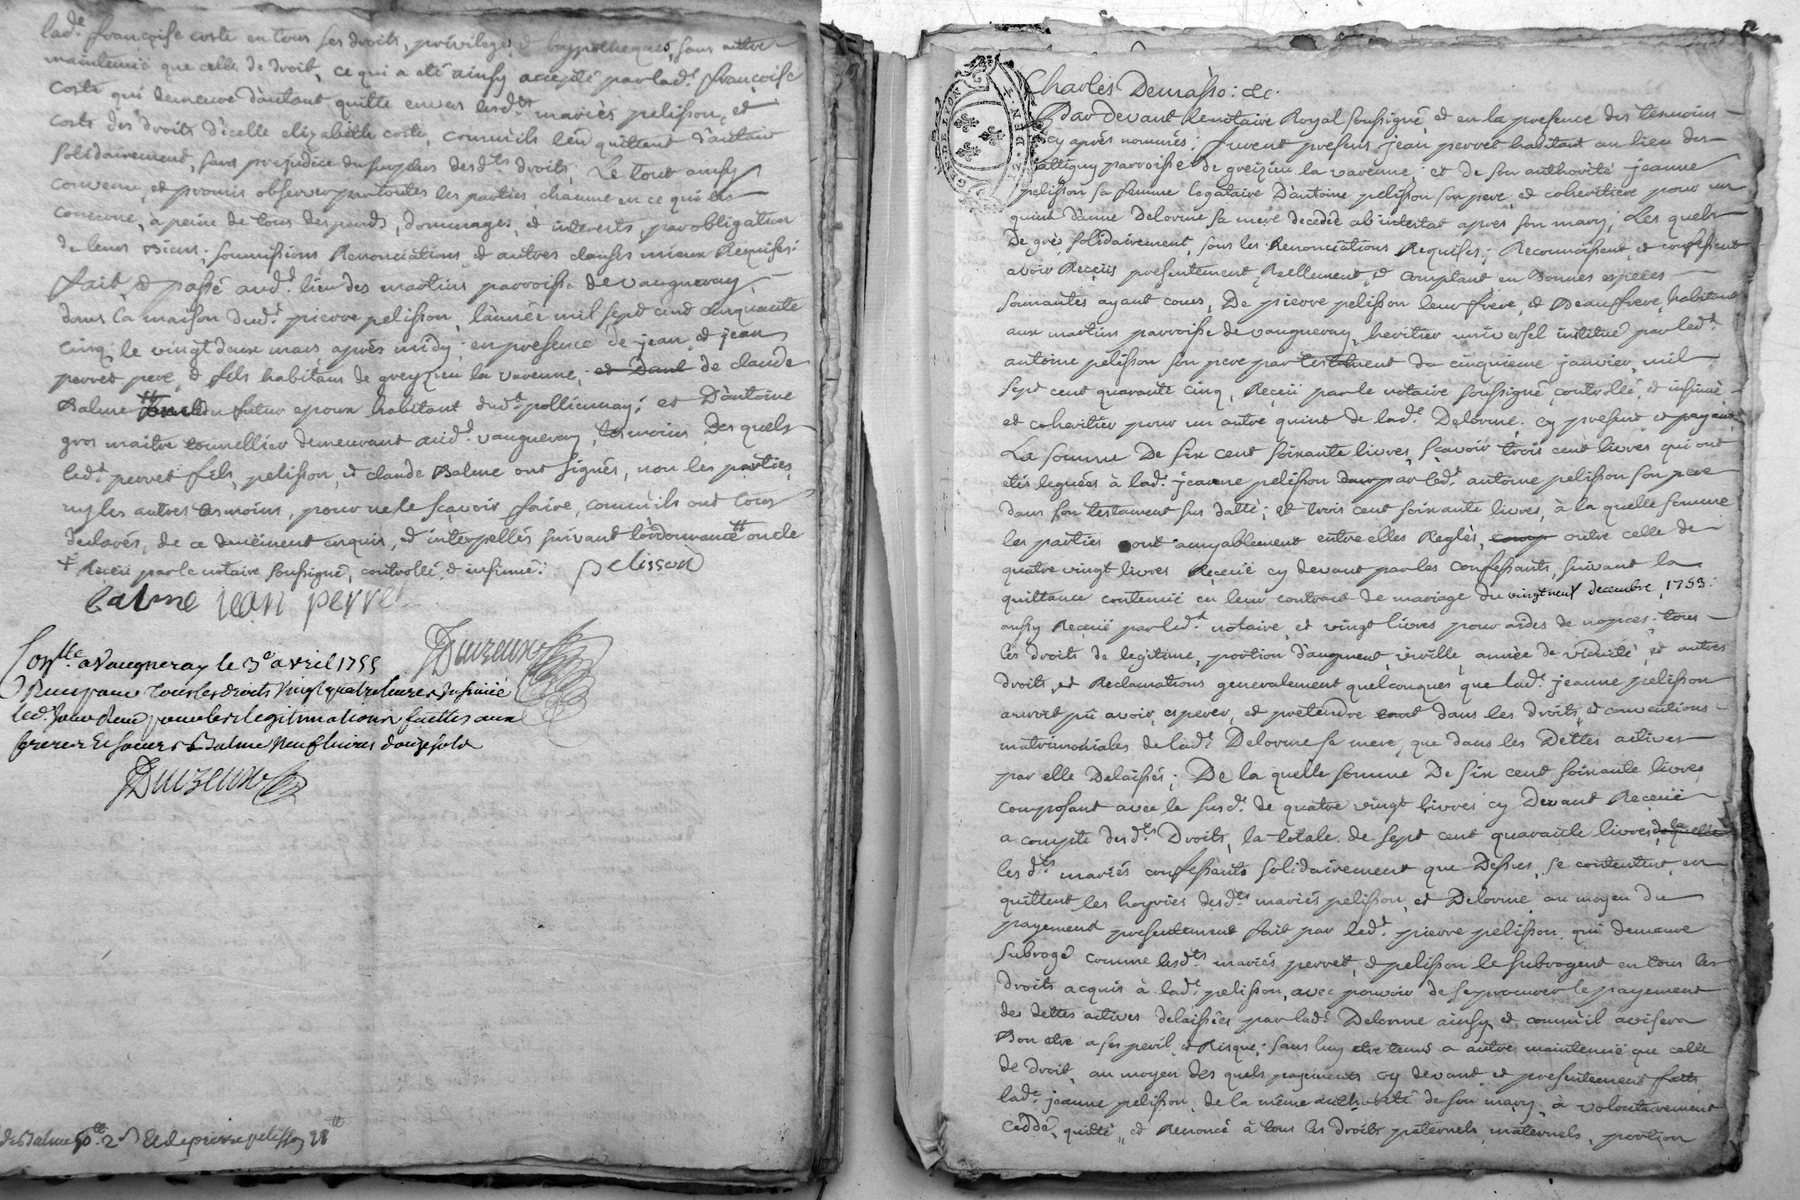 lad.e françoise coste en tous ses droits, privileges, et hypotheques, sans autre
maintenüe que celle de droit, ce qui a eté ainsy accepté par lad.e françoise
Coste qui demeure d'autant quitte envers lesd.ts mariés pelisson, et
coste des droits d'icelle elizabeth coste, comm'ils l'en quittent d'autant
solidairement, sans prejudice du surplus desd.ts droits. Le tout ainsy
convenu, et promis observer par toutes les parties chacune en ce qui les
concerne, à peine de tous despends, dommages, et interests, par obligation
de leurs Biens, soumissions Renonciations, et autres clauses mieux Requises:
fait, et passé aud.t lieu des martins parroisse de vaugneray,
dans la maison dud.t pierre pelisson, l'année mil sept cent cinquante
cinq, le vingt deux mars, après midy, en presence de jean, et jean
perret pere, et fils habitans de greyzieu la varenne, et Dant de claude
Balme futur epoux habitant dud.t pollionnay, et D'antoine
gros maitre tonnellier demeurant aud.t vaugneray, tesmoins, Des quels
led.t perret fils, pelisson, et claude Balme ont signés, non les parties,
ny les autres tesmoins, pour ne le sçavoir faire, comm'ils ont tous
declarés, de ce duëment enquis, et interpellés suivant l'ordonnance # oncle
+ Receü par le notaire soussigné, controllé, et insinué: pelisson
Balme jean perret
Con.lle a Vaugneray le 3e avril 1755
Reçu pour tous les droits vingt quatre livres
led. pour les legitimations faittes aux
freres et soeurs Balme neuf livres douze sols
de Balme et de pierre pelisson 28 tt
Charles Demasso: &c.
Par Devant le notaire Royal soussigné, et en la presence des tesmoins
cy après nommés; furent presens jean perret habitant au lieu des
parroisse de greizieu la varenne, et de son authorité jeanne
pelisson sa femme legataire D'antoine pelisson son pere, et coheritiere pour un
quint d'anne Delorme sa mere decedée ab intestat après son mary; Les quels
De gré, solidairement, sous les Renonciations Requises; Reconnoissent, et confessent
avoir Receüs presentement, Reellement, et comptant en Bonnes especes
sonnantes ayant cours, De pierre pelisson leur frere, et Beaufrere, habitant
aux martins parroisse de vaugneray, heritier universel institué par led.t
antoine pelisson son pere par testament du cinquieme janvier mil
sept cent quarante cinq, Receü par le notaire soussigné, controllé, et insinué
et coheritier pour un autre quint de lad.e Delorme, cy present, et payant
La somme De six cent soixante livres, sçavoir trois cent livres qui ont
etés leguées à lad.e jeanne pelisson par led.t antoine pelisson son pere
dans son testament sus datté; et trois cent soixante livres, à la quelle somme
les parties ont amyablement entre elles Reglés, outre celle de
quatre vingt livres Receüe cy devant par les confessants, suivant la
quittance contenüe en leur contrat de mariage du vingt neuf decembre, 1753:
aussy Receüe par led.t notaire, et vingt livres pour aides de nopces: tous
les droits de legitime, portion d'augment, virille, année de viduité, et autres
droits, et Reclamations generalement quelconques que lad.e jeanne pelisson
auroit pû avoir, esperer, et pretendre tant dans les droits, et conventions
matrimoniales de lad.e Delorme sa mere, que dans les Dettes actives
par elle Delaissées; De la quelle somme De six cent soixante livres
composant avec la susd.e de quatre vingt livres cy Devant Receüe
a compte desd.ts Droits, la totale de sept cent quarante livres, de laquelle
les d.ts mariés confessants solidairement que Dessus, se contentent, en
quittent les hoyries desd.ts mariés pelisson, et Delorme au moyen du
payement presentement fait par led.t pierre pelisson, qui demeure
subrogé comme lesd.ts mariés perret, et pelisson le subrogent en tous les
droits acquis à lad.e pelisson, avec pouvoir de se procurer le payement
des dettes actives delaissées par lad.e Delorme ainsy, et comm'il avisera
Bon etre a ses peril, et Risque; sans luy etre tenus a autre maintenüe que celle
de Droit, au moyen des quels payements cy devant, et presentement faits
lad.e jeanne pelisson, de la même authorité de son mary, à volontairement
ceddé, quitté, et Renoncé à tous les droits paternels, maternels, portion